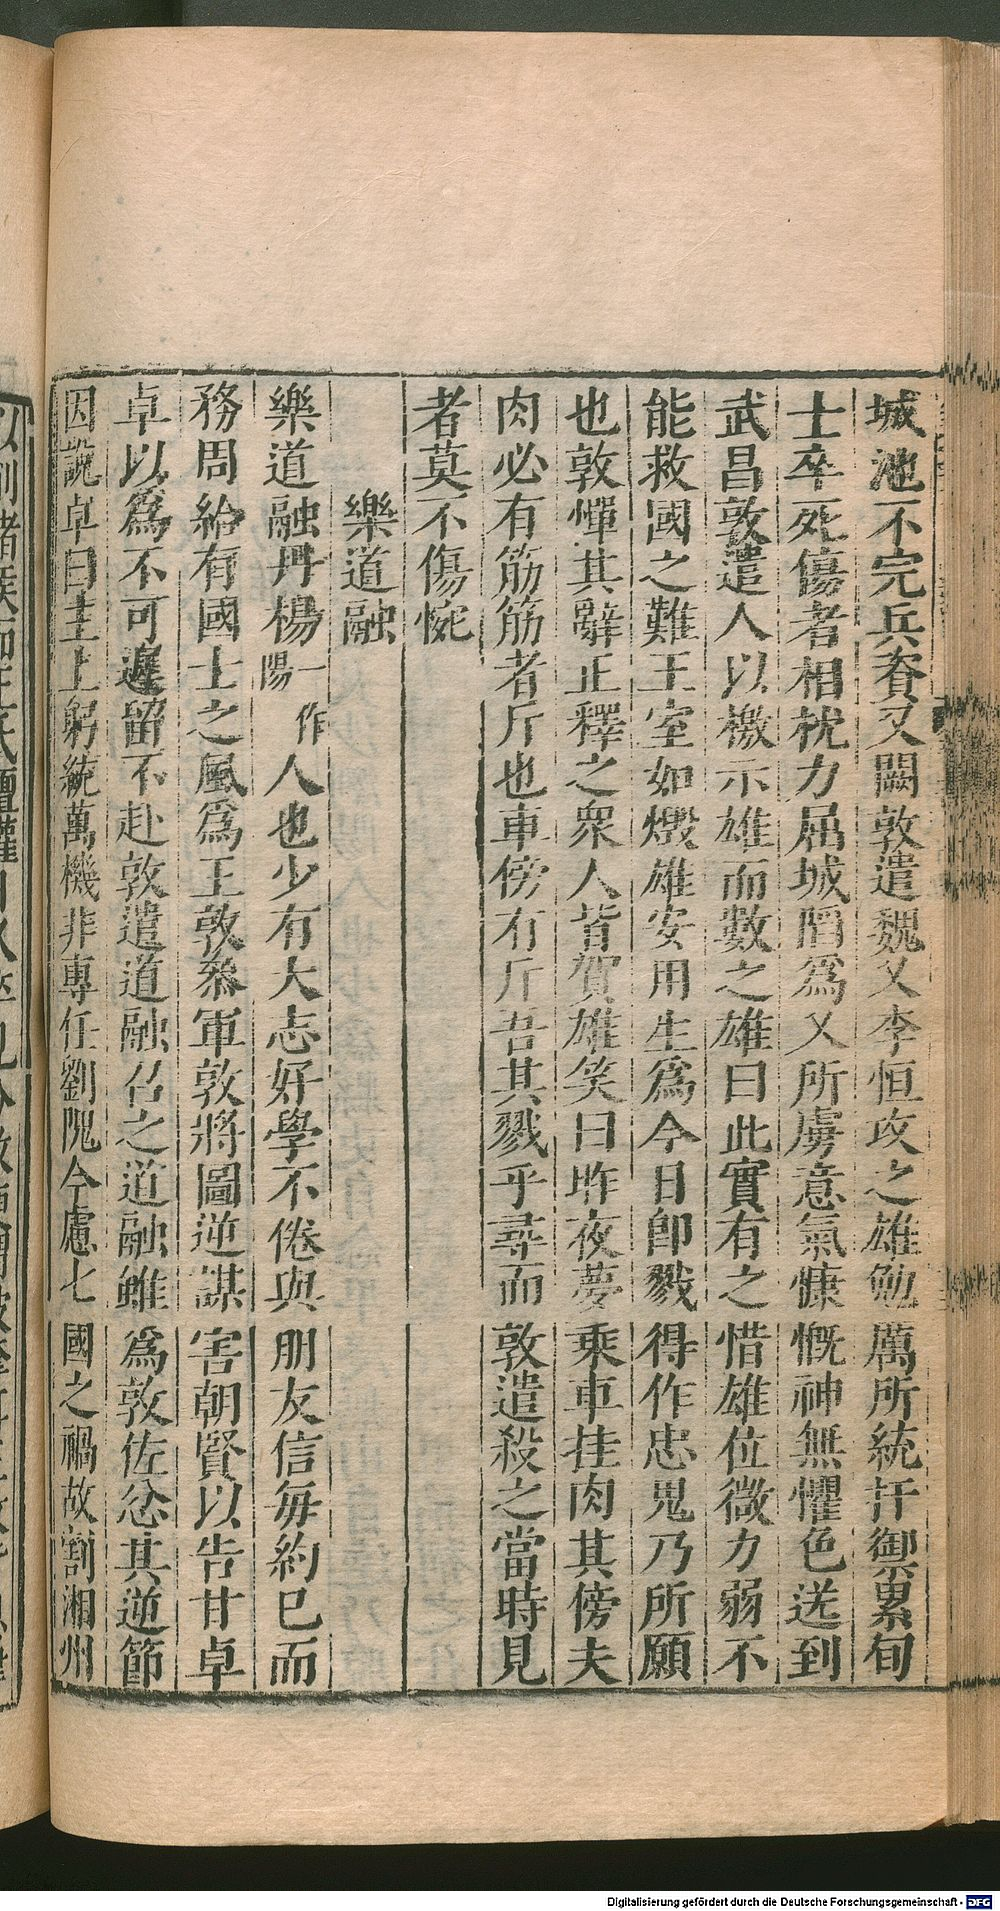 城池不完兵資又闕敦遣魏乂李恒攻之雄勉厲所統扞禦累旬
士卒死傷者相枕力屈城䧟爲乂所虜意氣慷慨神無懼色送到
武昌敦遣人以檄示雄而數之雄曰此實有之惜雄位微力弱不
能救國之難王室如燬雄安用生爲今日卽戮得作忠鬼乃所願
也敦憚其辭正釋之衆人皆賀雄笑曰昨夜夢乘車挂肉其傍夫
肉必有筋筋者斤也車傍有斤吾其戮乎尋而敦遣殺之當時見
者莫不傷惋
樂道融
樂道融丹楊一作陽人也少有大志好學不倦與朋友信每約已而
務周給有國士之風爲王敦參軍敦將圖逆謀害朝賢以告甘卓
卓以爲不可遲留不赴敦遣道融召之道融雖爲敦佐忿其逆節
因說卓曰主上躬統萬機非專任劉隗今慮七國之禍故割湘州
Digitalisierung gefördert durch die Deutsche Forschungsgemeinschaft - DFG